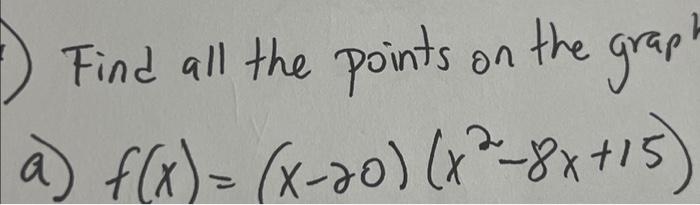 ) Find all the points on the graph
a) f(x) = (x-20) (x²-8x+15)